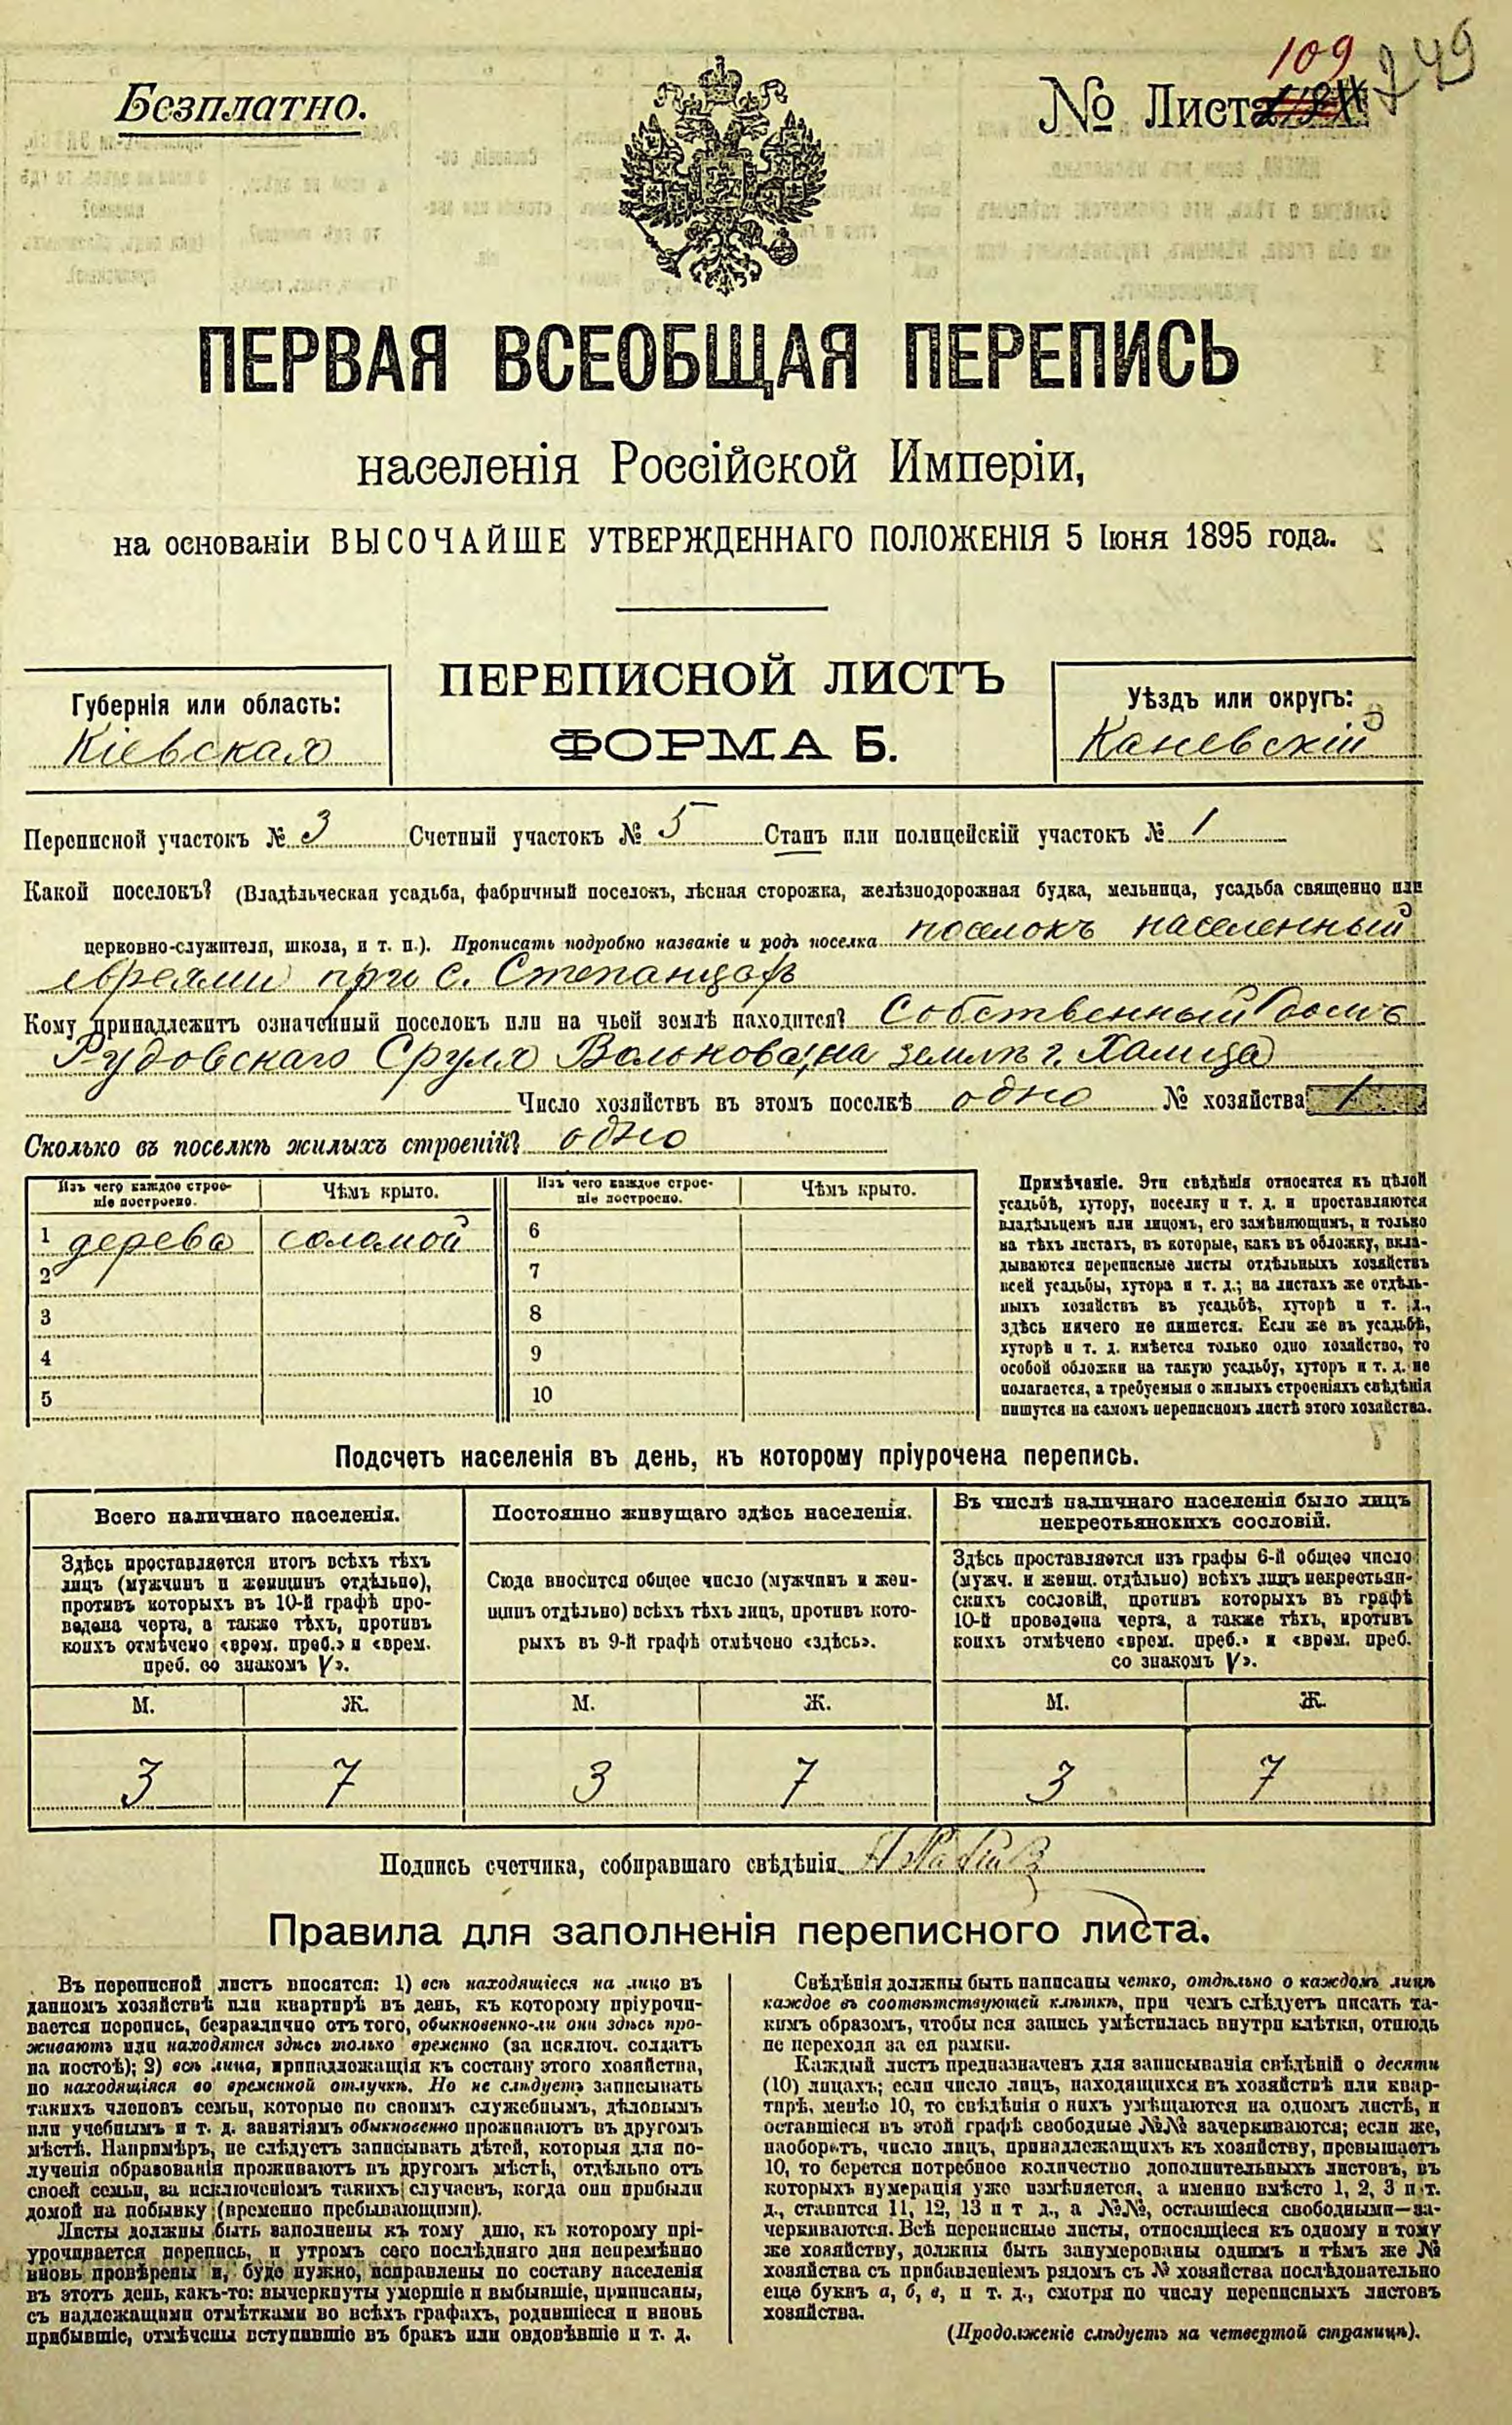 109
249
Безплатно.
№ Листа
ПЕРВАЯ ВСЕОБЩАЯ ПЕРЕПИСЬ
населенія Россійской Имперіи,
на основаніи ВЫСОЧАЙШЕ УТВЕРЖДЕННАГО ПОЛОЖЕНІЯ 5 Іюня 1895 года.
ПЕРЕПИСНОЙ ЛИСТЪ
ФОРМА Б.
Губернія или область:
Кіевская
Уѣздъ или округъ:
Каневскій
Переписной участокъ № 3 Счетный участокъ № 5 Станъ или полицейскій участокъ № 1
Какой поселокъ? (Владѣльческая усадьба, фабричный поселокъ, лѣсная сторожка, желѣзнодорожная будка, мельница, усадьба священно или
церковно-служителя, школа, и т. п.). Прописать подробно названіе и родъ поселка поселокъ населенный
евреями при с. Степанцахъ
Кому принадлежитъ означенный поселокъ или на чьей землѣ находится? Собственный домъ
Рудовскаго Сруля Волькова, на землѣ г.
Число хозяйствъ въ этомъ поселкѣ одно № хозяйства 1
Сколько въ поселкѣ жилыхъ строеній? одно
Изъ чего каждое строе-
ніе построено.
Чѣмъ крыто.
Изъ чего каждое строе-
ніе построено.
Чѣмъ крыто.
1 дерева соломой
2
3
4
5
6
7
8
9
10
Примѣчаніе. Эти свѣдѣнія относятся къ цѣлой
усадьбѣ, хутору, поселку и т. д. и проставляются
владѣльцемъ или лицомъ, его замѣняющимъ, и только
на тѣхъ листахъ, въ которые, какъ въ обложку, вкла-
дываются переписные листы отдѣльныхъ хозяйствъ
всей усадьбы, хутора и т. д.; на листахъ же отдѣль-
ныхъ хозяйствъ въ усадьбѣ, хуторѣ и т. д.,
здѣсь ничего не пишется. Если же въ усадьбѣ,
хуторѣ и т. д. имѣется только одно хозяйство, то
особой обложки на такую усадьбу, хуторъ и т. д. не
полагается, а требуемыя о жилыхъ строеніяхъ свѣдѣнія
пишутся на самомъ переписномъ листѣ этого хозяйства.
Подсчетъ населенія въ день, къ которому пріурочена перепись.
Всего наличнаго населенія.
Здѣсь проставляется итогъ всѣхъ тѣхъ
лицъ (мужчинъ и женщинъ отдѣльно),
противъ которыхъ въ 10-й графѣ про-
ведена черта, а также тѣхъ, противъ
коихъ отмѣчено «врем. преб.» и «врем.
преб. со знакомъ V».
Постоянно живущаго здѣсь населенія.
Сюда вносится общее число (мужчинъ и жен-
щинъ отдѣльно) всѣхъ тѣхъ лицъ, противъ кото-
рыхъ въ 9-й графѣ отмѣчено «здѣсь».
Въ числѣ наличнаго населенія было лицъ
некрестьянскихъ сословій.
Здѣсь проставляется изъ графы 6-й общее число
(мужч. и женщ. отдѣльно) всѣхъ лицъ некрестьян-
скихъ сословій, противъ которыхъ въ графѣ
10-й проведена черта, а также тѣхъ, противъ
коихъ отмѣчено «врем. преб.» и «врем. преб.
со знакомъ V».
М. Ж. М. Ж. М. Ж.
3 7 3 7 3 7
Подпись счетчика, собиравшаго свѣдѣнія.
Правила для заполненія переписного листа.
Въ переписной листъ вносятся: 1) всѣ находящіеся на лицо въ
данномъ хозяйствѣ или квартирѣ въ день, къ которому пріурочи-
вается перепись, безразлично отъ того, обыкновенно-ли они здѣсь про-
живаютъ или находятся здѣсь только временно (за исключ. солдатъ
на постоѣ); 2) всѣ лица, принадлежащія къ составу этого хозяйства,
но находящіяся во временной отлучкѣ. Но не слѣдуетъ записывать
такихъ членовъ семьи, которые по своимъ служебнымъ, дѣловымъ
или учебнымъ и т. д. занятіямъ обыкновенно проживаютъ въ другомъ
мѣстѣ. Напримѣръ, не слѣдуетъ записывать дѣтей, которыя для по-
лученія образованія проживаютъ въ другомъ мѣстѣ, отдѣльно отъ
своей семьи, за исключеніемъ такихъ случаевъ, когда они прибыли
домой на побывку (временно пребывающими).
Листы должны быть заполнены къ тому дню, къ которому прі-
урочивается перепись, и утромъ сего послѣдняго дня непремѣнно
вновь провѣрены и, буде нужно, исправлены по составу населенія
въ этотъ день, какъ-то: вычеркнуты умершіе и выбывшіе, приписаны,
съ надлежащими отмѣтками во всѣхъ графахъ, родившіеся и вновь
прибывшіе, отмѣчены вступившіе въ бракъ или овдовѣвшіе и т. д.
Свѣдѣнія должны быть написаны четко, отдѣльно о каждомъ лицѣ
каждое въ соотвѣтствующей клѣткѣ, при чемъ слѣдуетъ писать та-
кимъ образомъ, чтобы вся запись умѣстилась внутри клѣтки, отнюдь
не переходя за ея рамки.
Каждый листъ предназначенъ для записыванія свѣдѣній о десяти
(10) лицахъ; если число лицъ, находящихся въ хозяйствѣ или квар-
тирѣ, менѣе 10, то свѣдѣнія о нихъ умѣщаются на одномъ листѣ, и
оставшіеся въ этой графѣ свободные №№ зачеркиваются; если же,
наоборотъ, число лицъ, принадлежащихъ къ хозяйству, превышаетъ
10, то берется потребное количество дополнительныхъ листовъ, въ
которыхъ нумерація уже измѣняется, а именно вмѣсто 1, 2, 3 и т.
д., ставится 11, 12, 13 и т д., а №№, оставшіеся свободными—за-
черкиваются. Всѣ переписные листы, относящіеся къ одному и тому
же хозяйству, должны быть занумерованы однимъ и тѣмъ же №
хозяйства съ прибавленіемъ рядомъ съ № хозяйства послѣдовательно
еще буквъ а, б, в, и т. д., смотря по числу переписныхъ листовъ
хозяйства.
(Продолженіе слѣдуетъ на четвертой страницѣ).